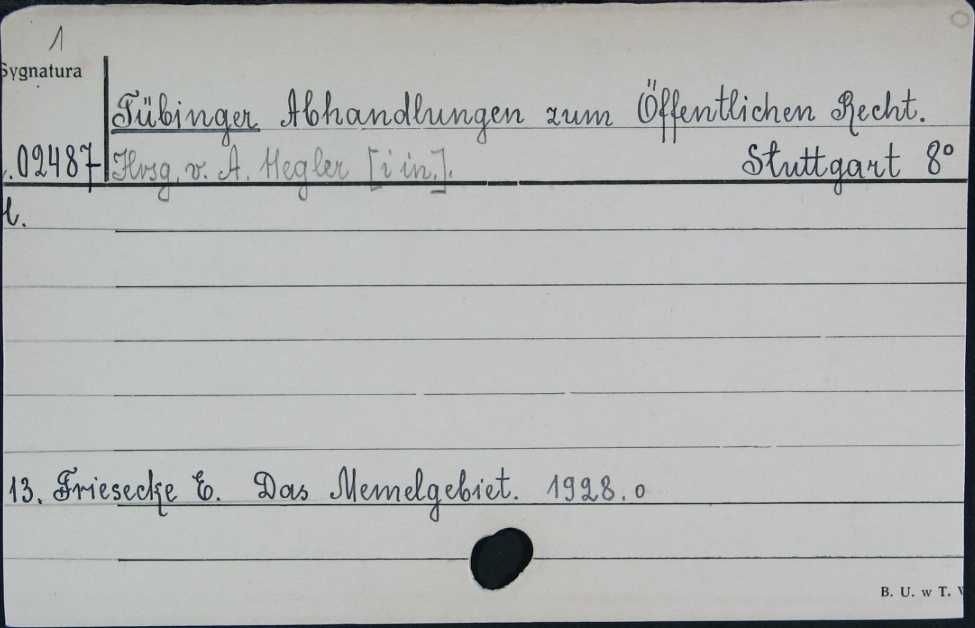 1
Sygnatura
Tübinger Abhandlungen zum Öffentlichen Recht.
.02487 Hrsg. v. A. Hegler [i in.]. Stuttgart 8°
13. Friesecke E. Das Memelgebiet. 1928. o
B. U. w T.